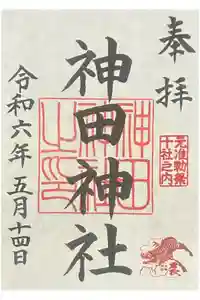 奉拝
元准勅祭
十社之内
神田神社
神田神社之印
令和六年五月十四日